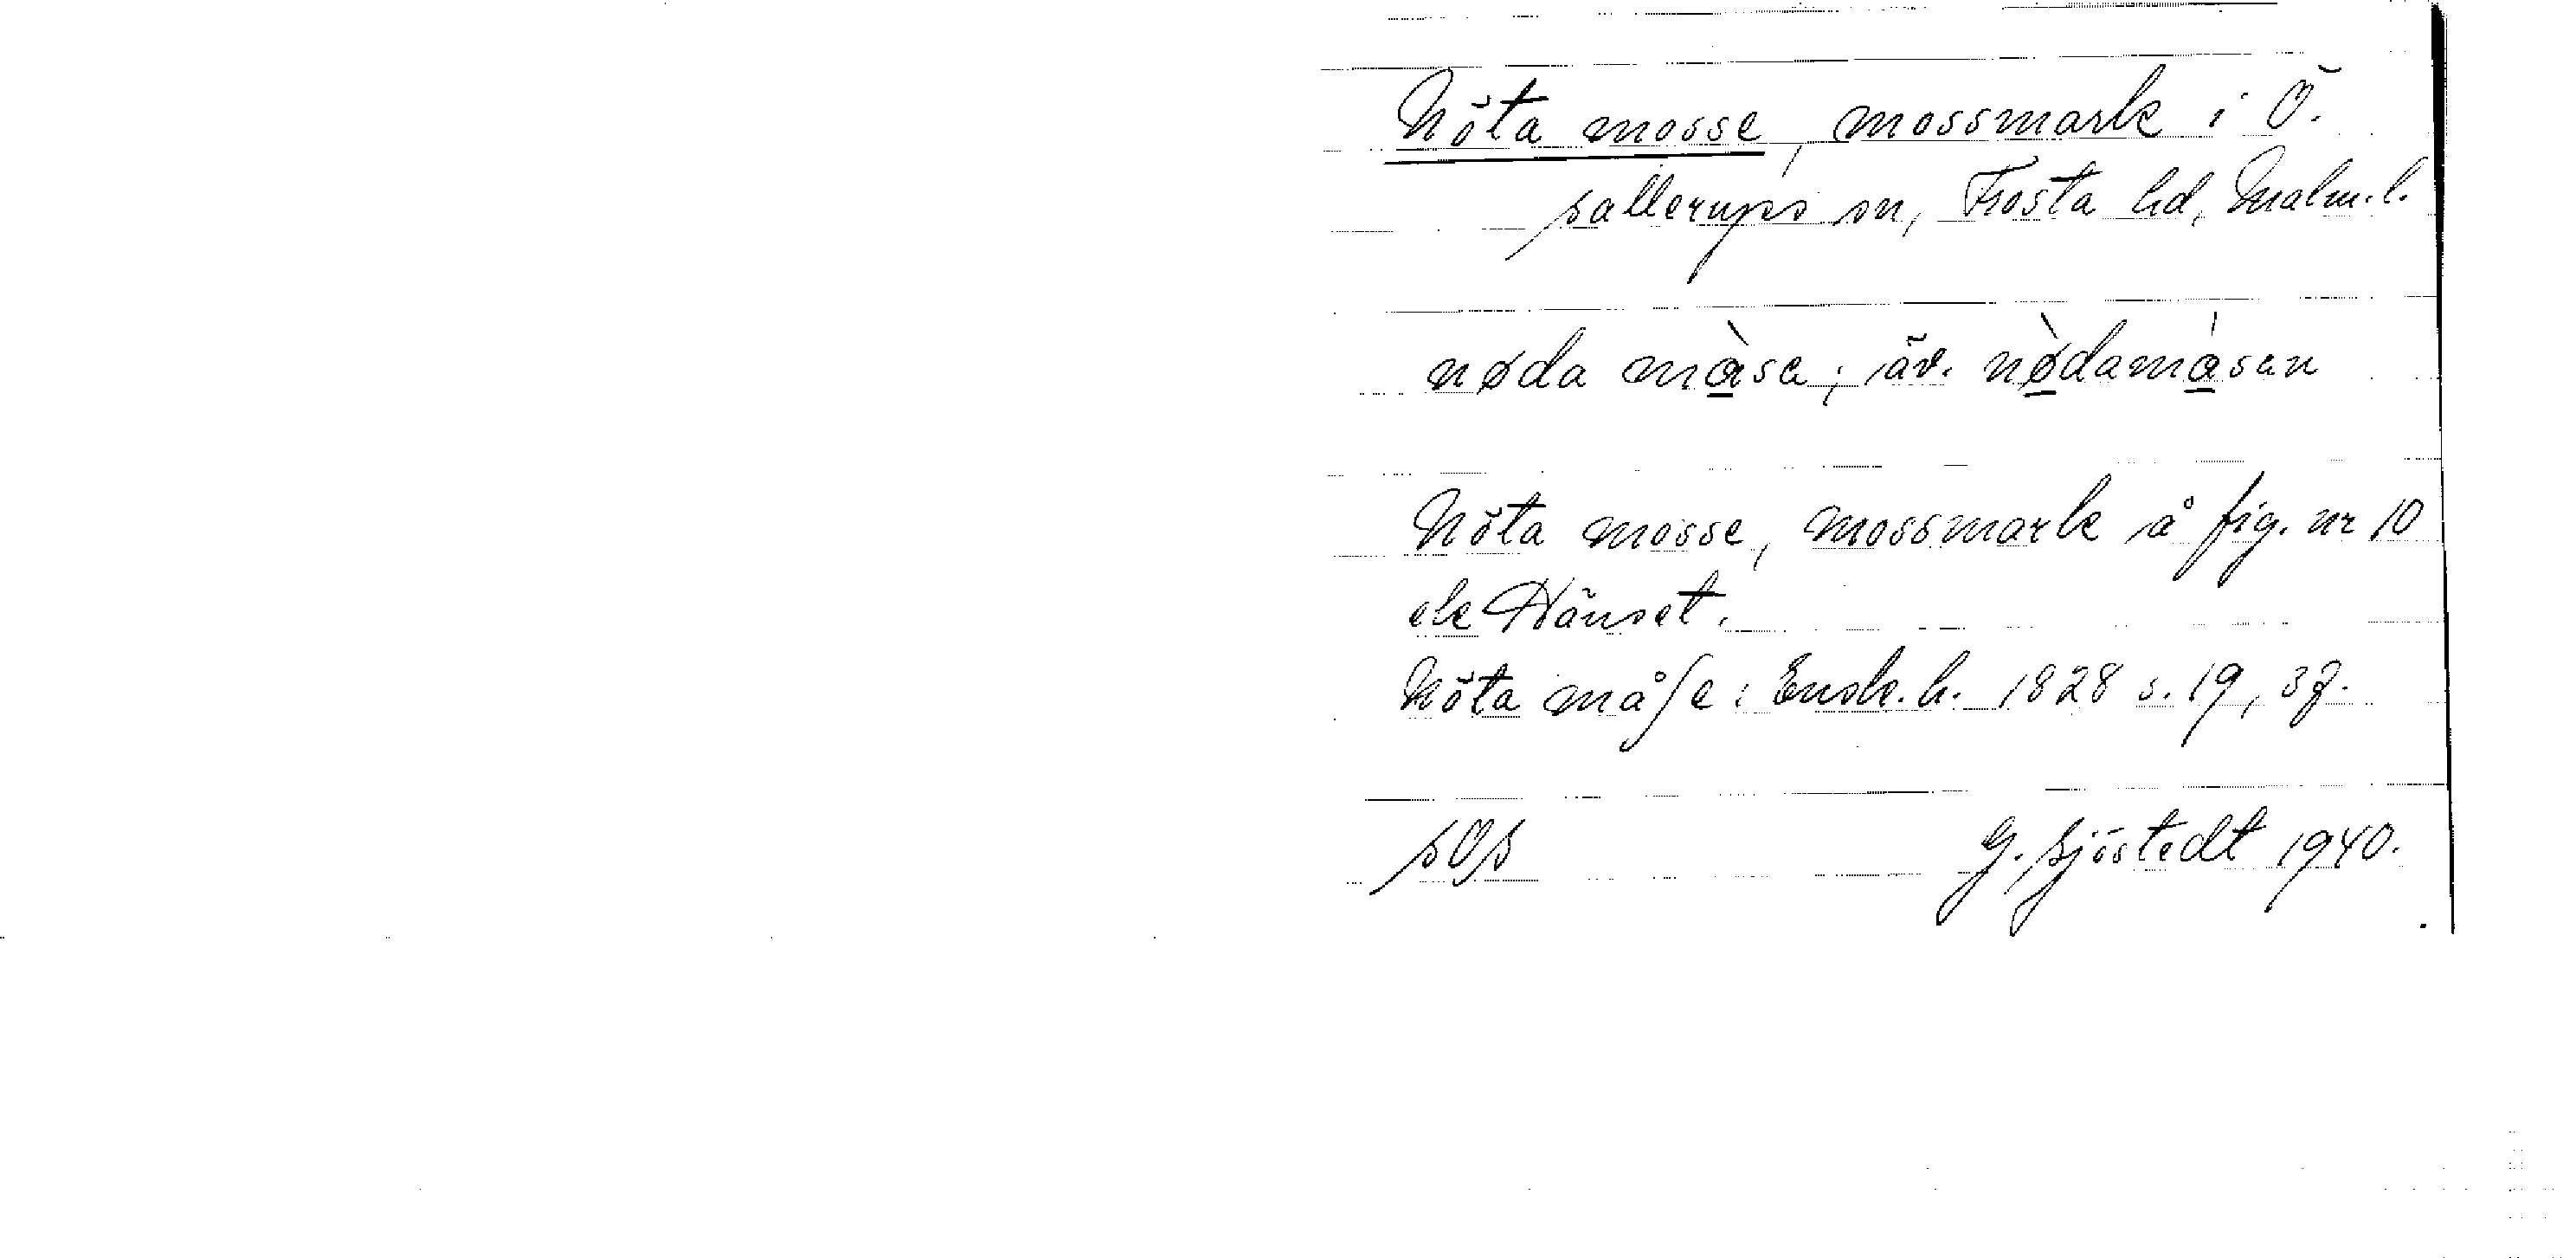 Nöta mosse, mossmark i Ö.
Sallerups sn, Frosta hd, Malm.l.
nøda màse; äv. nø̀damásen
Nöta mosse, mossmark å fig. nr 10
ek Hänset.
Nöta måſe: Ensk.h. 1828 s. 19, 37.
SOS G. Sjöstedt 1940.